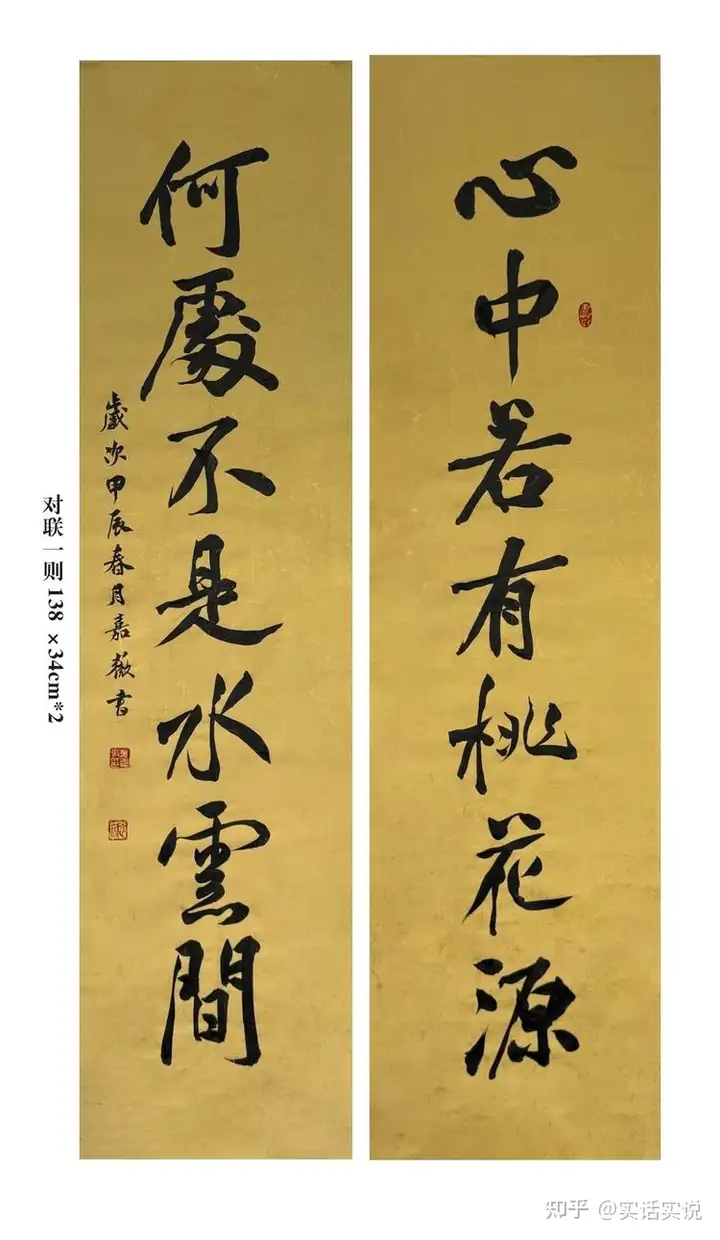 心中若有桃花源
何處不是水雲間
歲次甲辰春月嘉薇書
对联一则 138 ×34cm*2
知乎 @实话实说